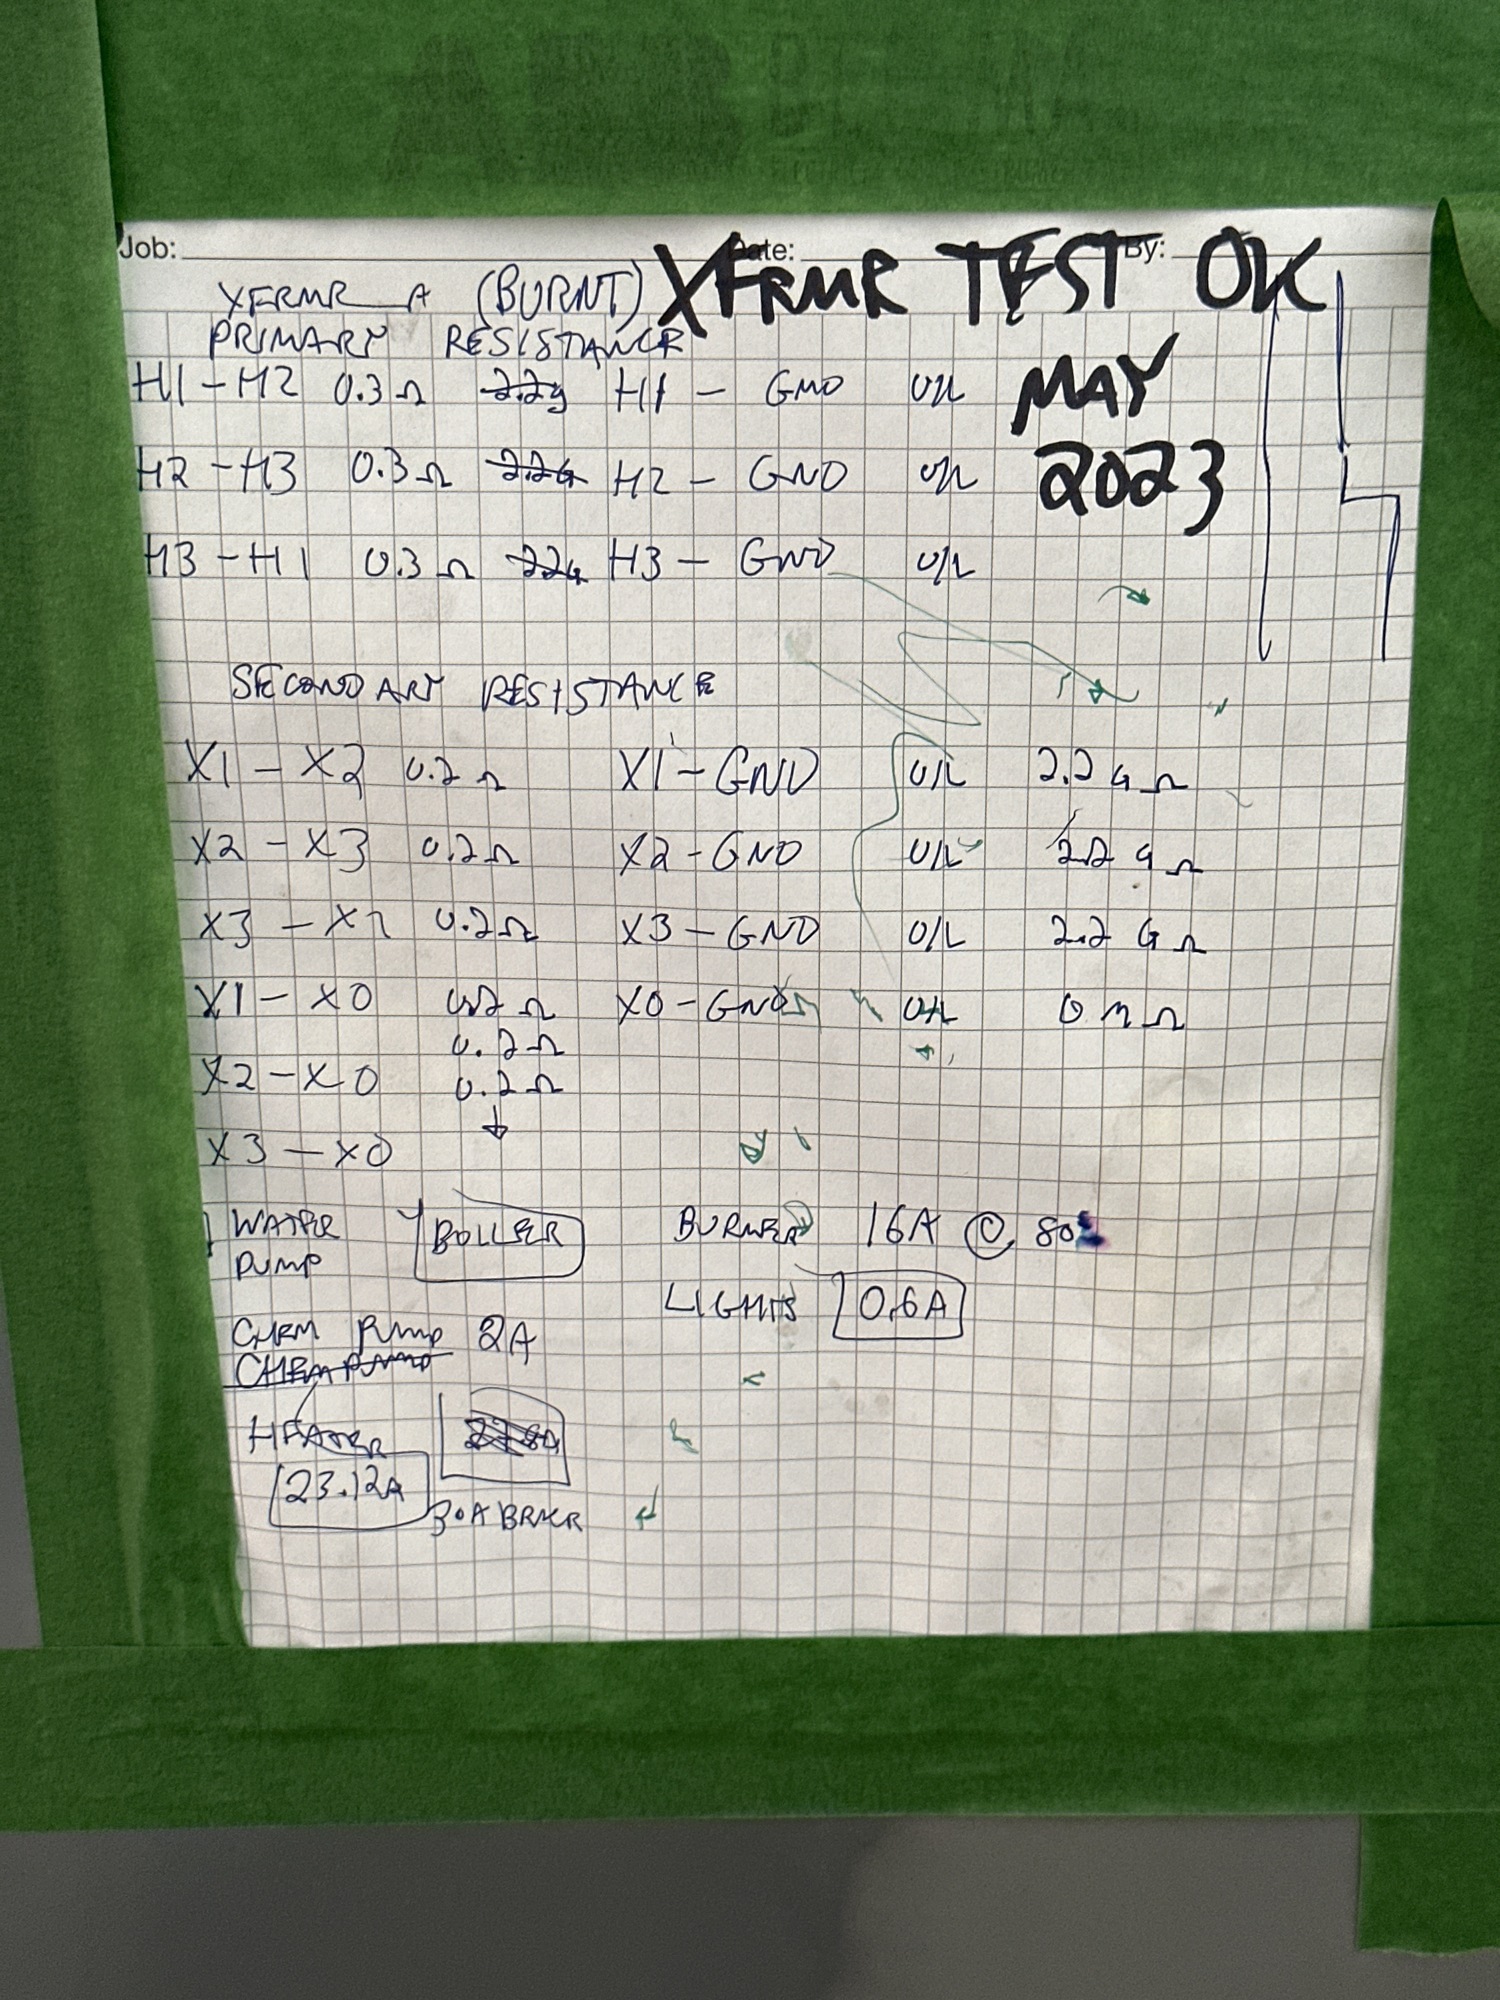 Job: Date: By:
XFRMR A (BURNT) XFRMR TEST OK
PRIMARY RESISTANCE
MAY
2023
H1 - H2 0.3 Ω 2.2G H1 - GND O/L
H2 - H3 0.3 Ω 2.2G H2 - GND O/L
H3 - H1 0.3 Ω 2.2G H3 - GND O/L
SECONDARY RESISTANCE
X1 - X2 0.2 Ω X1 - GND O/L 2.2 G Ω
X2 - X3 0.2 Ω X2 - GND O/L 2.2 G Ω
X3 - X1 0.2 Ω X3 - GND O/L 2.2 G Ω
X1 - X0 0.2 Ω X0 - GND O/L 0 M Ω
0.2 Ω
X2 - X0 0.2 Ω
X3 - X0
WATER BOILER BURNER 16A @ 80%
PUMP
LIGHTS 0.6A
CHEM PUMP 2A
CHEM PUMP
HEATER
23.12A
30A BRKR